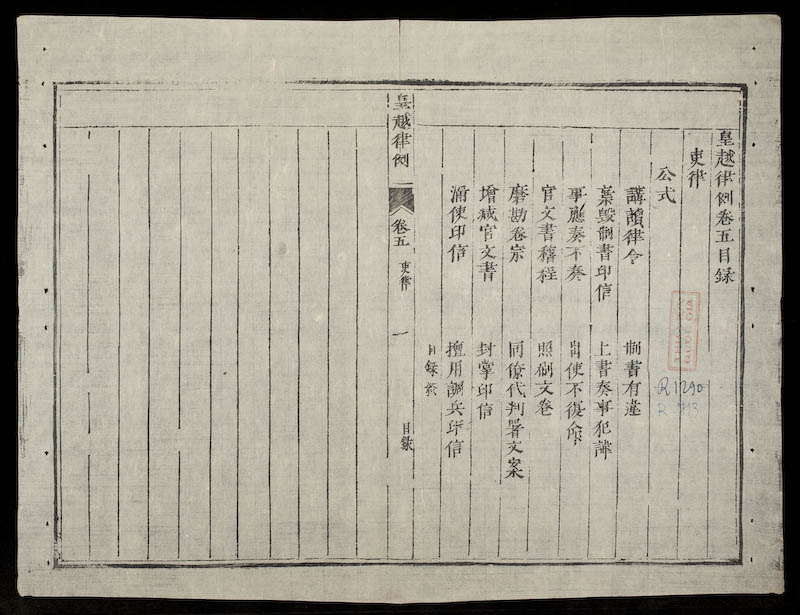 皇越律例卷五目録
吏律
公式
講讀律令
制書有違
棄毀制書印信
上書奏事犯諱
事應奏不奏
出使不復命
官文書稽程
照刷文卷
磨勘卷宗
同僚代判署文案
增減官文書
封掌印信
漏使印信
擅用調兵印信
目録終
皇越律例
卷五
吏律
一
目録
R 1290